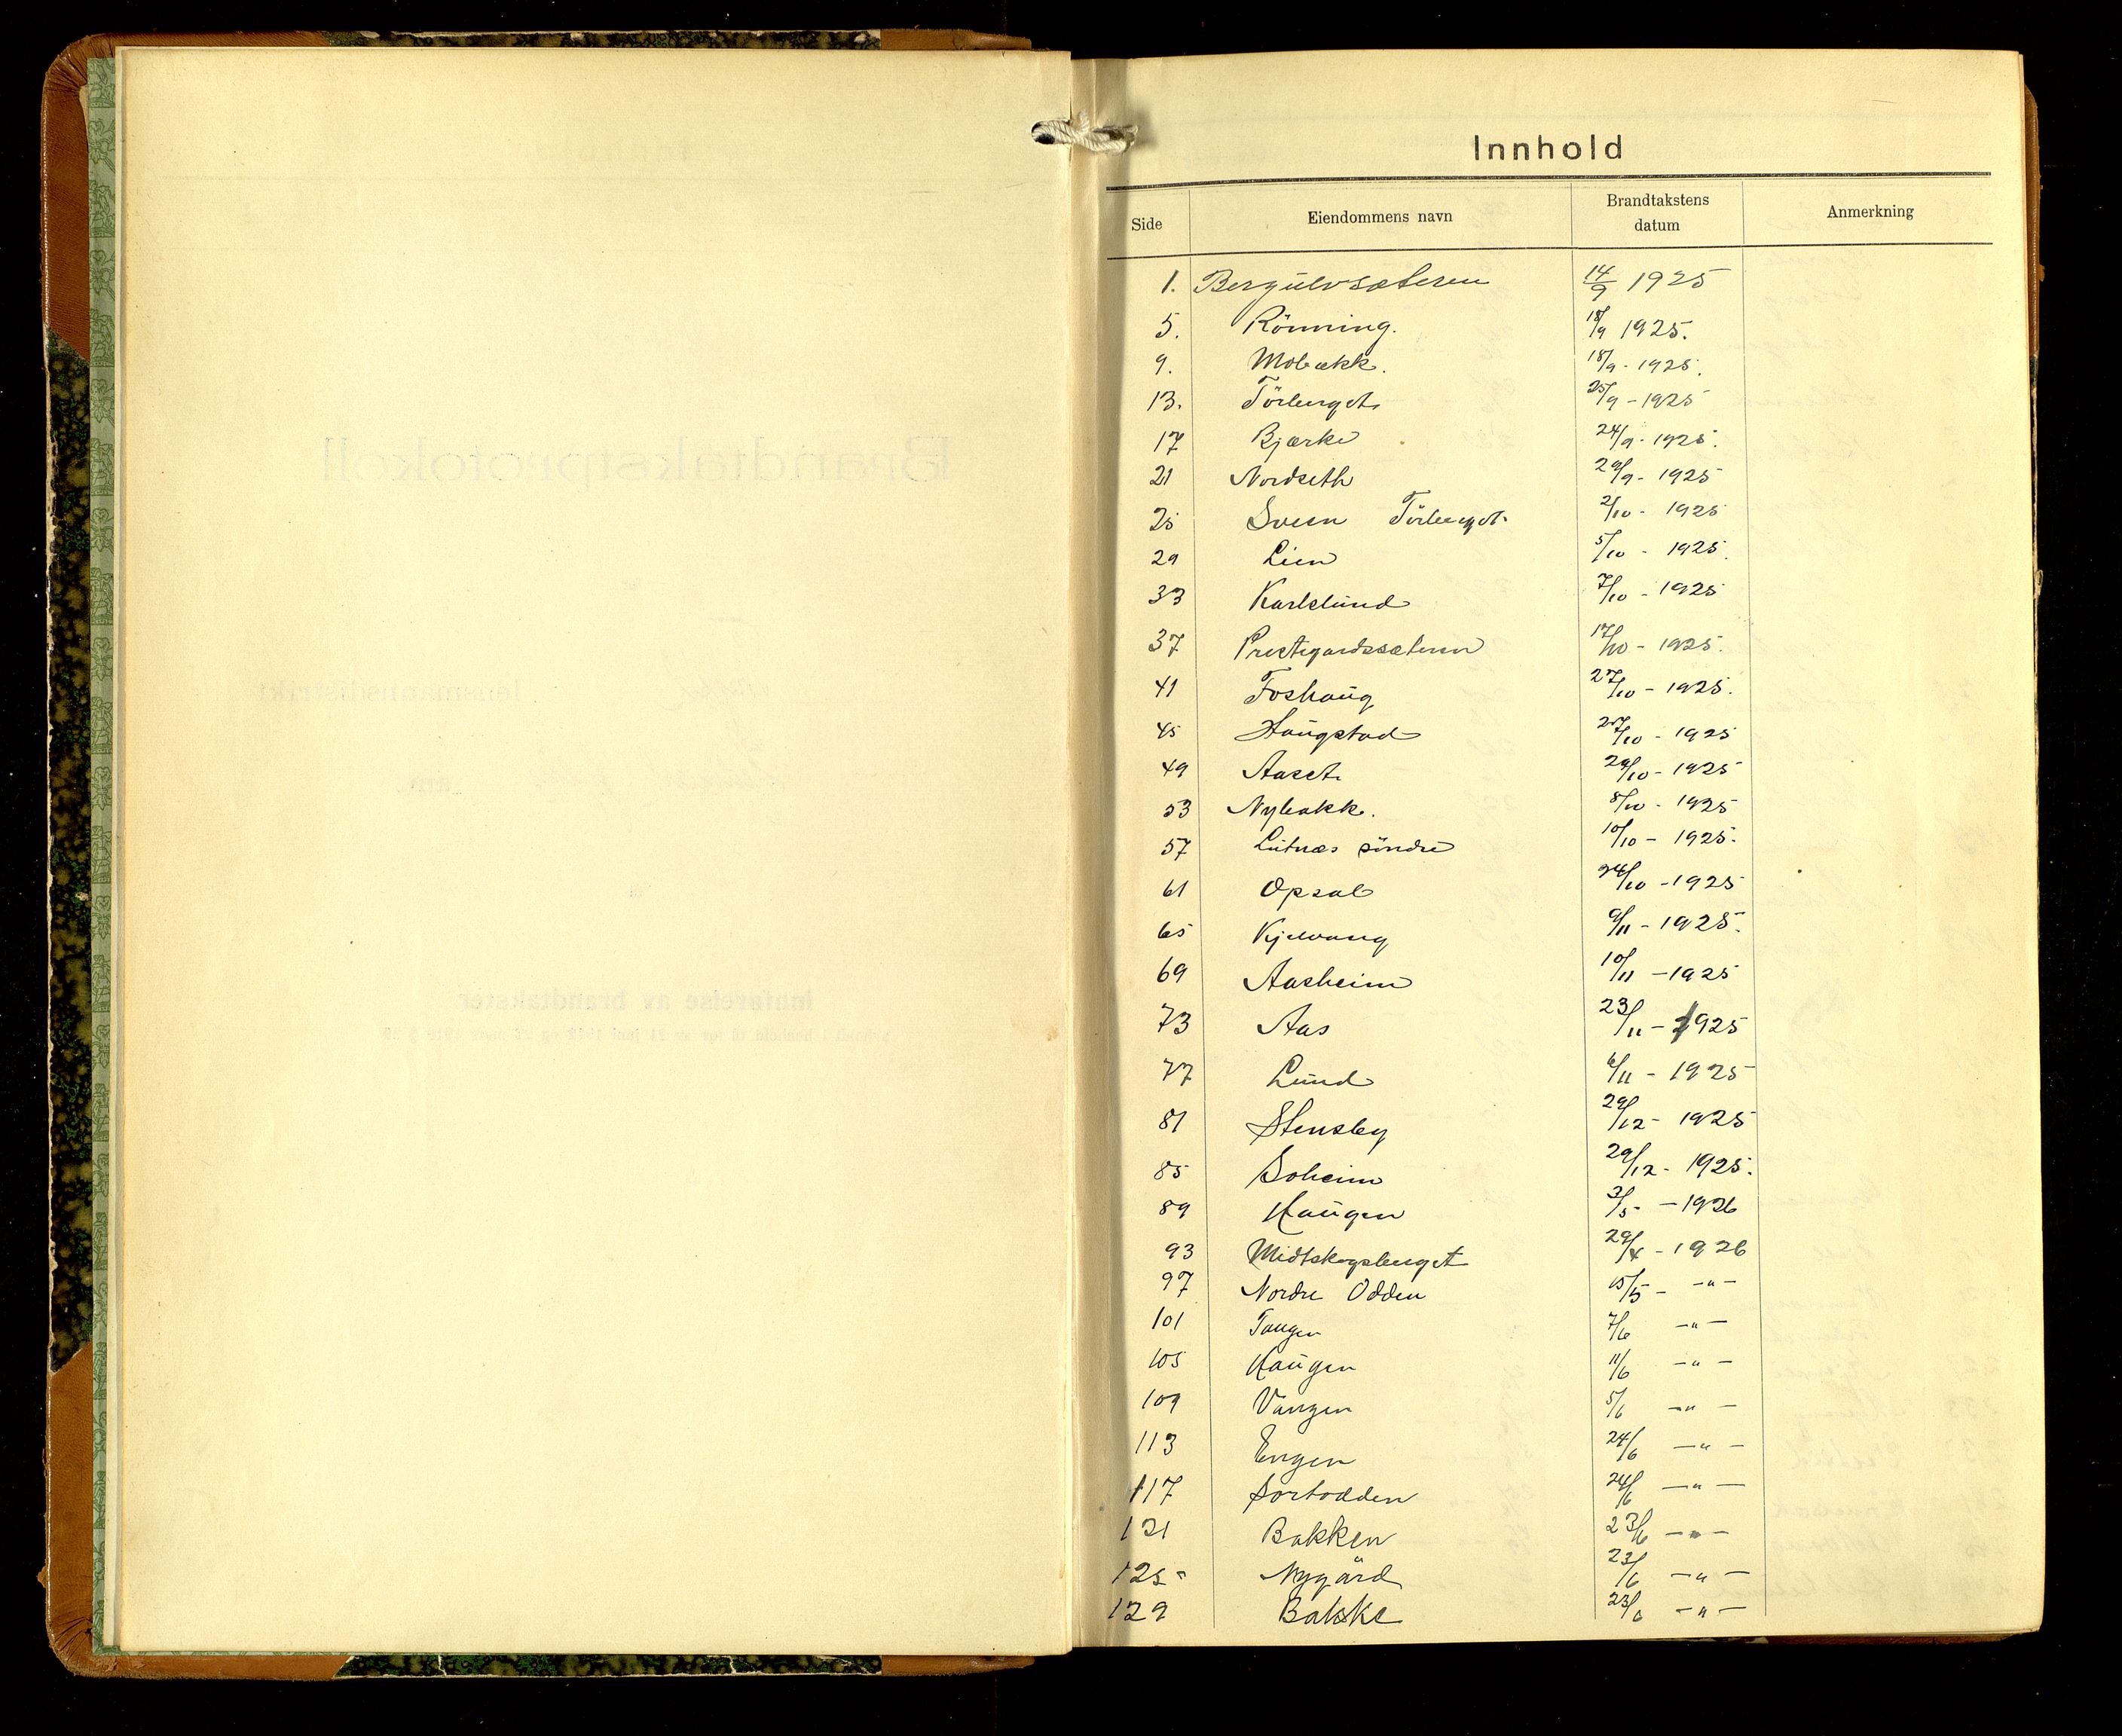 Innhold
Side Eiendommens navn Brandtakstens datum Anmerkning
1. Bergulvsæteren 14/9 1925
5. Rönning. 18/9 1925.
9. Mobækk. 18/9 - 1925.
13. Törberget. 25/9 - 1925
17 Bjærke 24/9 - 1925.
21 Nordseth 29/9 - 1925
25 Sveen Törberget. 2/10 - 1925
29 Lien 5/10 - 1925.
33 Karlslund 7/10 - 1925
37 Prestegardssæteren 17/10 - 1925.
41 Foshaug 27/10 - 1925.
45 Haugstad 27/10 - 1925
49 Aaset. 29/10 - 1925
53 Nybakk. 8/10 - 1925
57 Lutnæs söndre 10/10 - 1925.
61 Opsal 24/10 - 1925
65 Kjelvang 9/11 - 1925.
69 Aasheim 10/11 - 1925
73 Aas 23/11 - 1925
77 Lund 6/11 - 1925
81 Stensby 29/12 - 1925
85 Soheim 29/12 - 1925.
89 Haugen 3/5 - 1926
93 Midtskogsberget 29/4 - 1926
97 Nordre Odden 15/5 - -"-
101 Tangen 7/6 -"-
105 Haugen 11/6 -"-
109 Vangen 5/6 -"-
113 Engen 24/6 -"-
117 Sortodden 24/6 -"-
121 Bakken 23/6 -"-
125 Nygård 23/6 -"-
129 Bakke 23/6 -"-